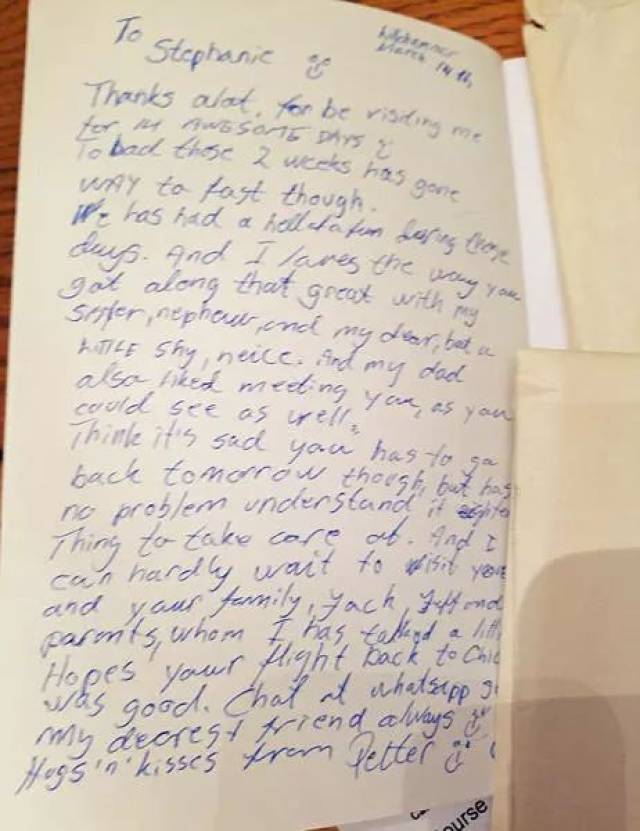 To
March 14th,
Stephanie
Thanks alat, for be visiting me
for 14 AWESOME DAYS
To bad those 2 weeks has gone
WAY to fast though.
We has had a hellofa fun during these
days. And I loves the way you
got along that great with my
sister, nephew, and my dear, but a
LITTLE shy, neice. And my dad
also liked meeting you, as you
could see as well.
Think it's sad you has to go
back tomorrow though, but has
no problem understand it
Thing to take care of. And I
can hardly wait to visit you
and your family, Jeff and
parents, whom I has talked a litt
Hopes your flight back to Chic
was good. Chat at whatsapp
my dearest friend always
Hugs 'n' kisses from Petter
ourse